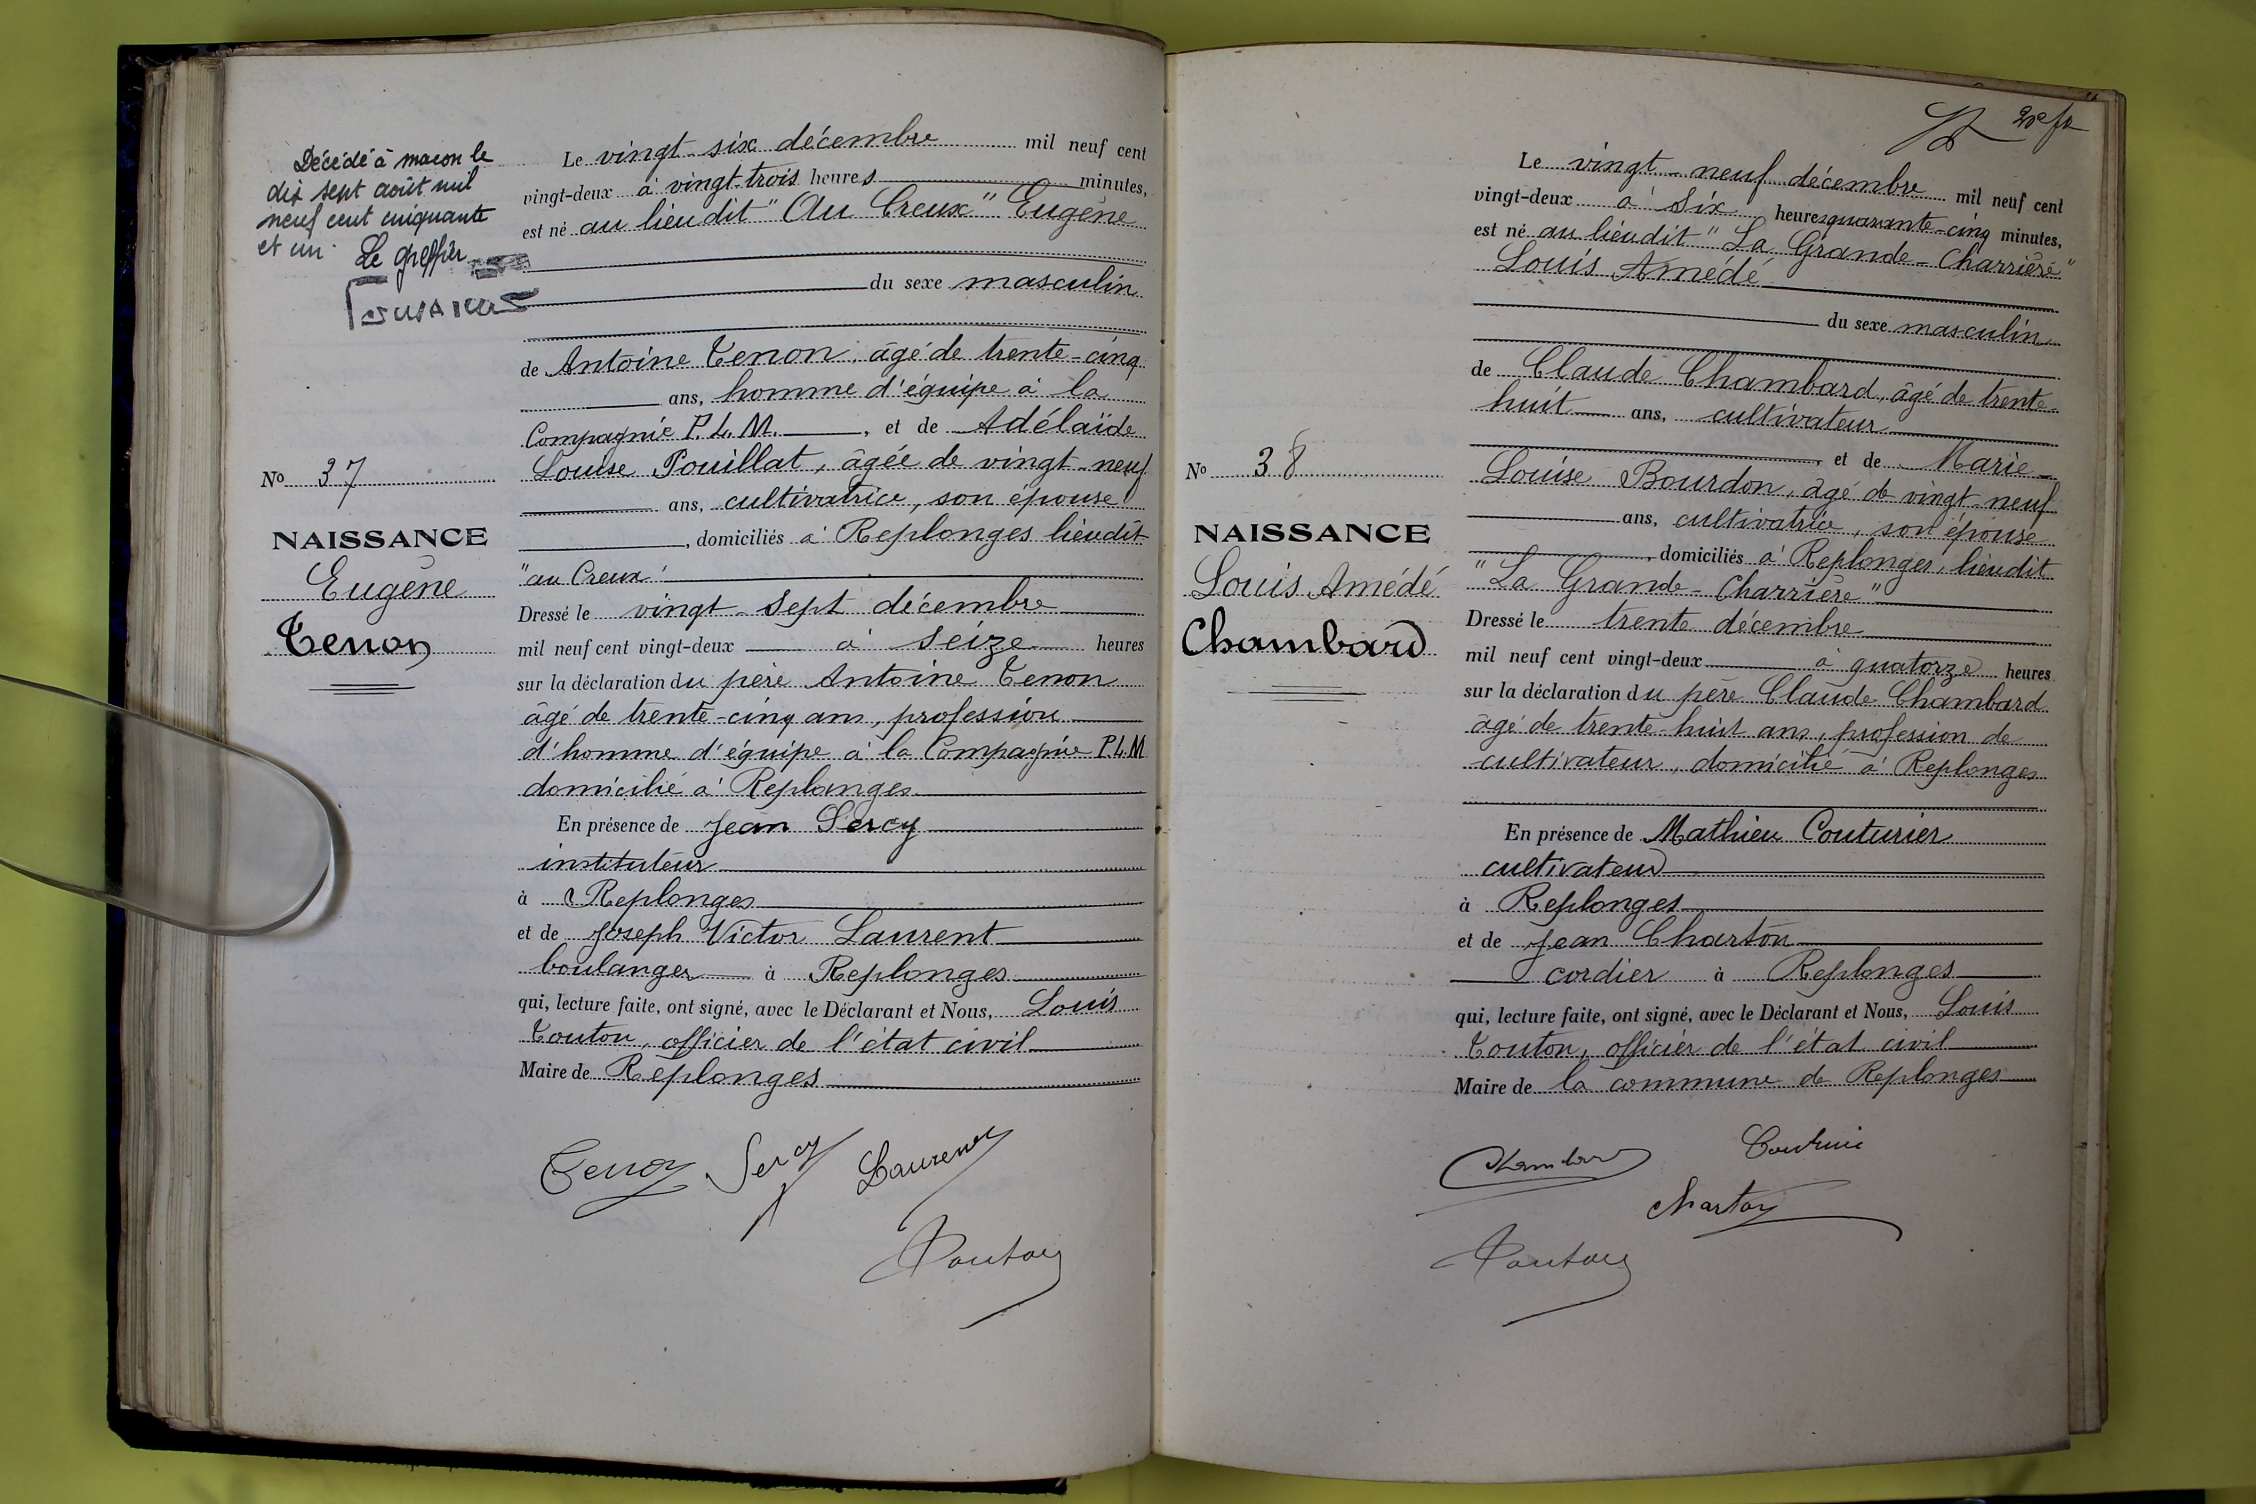 Décédé à macon le
dix sept août mil
neuf cent cinquante
et un. Le greffier
No 37
NAISSANCE
Eugène
Tenon
Le vingt-six décembre mil neuf cent
vingt-deux à vingt-trois heures minutes,
est né au lieu dit "Au Creux" Eugène
du sexe masculin
de Antoine Tenon, âgé de trente-cinq
ans, homme d'équipe à la
Compagnie P.L.M. , et de Adélaïde
Louise Pouillat, âgée de vingt-neuf
ans, cultivatrice, son épouse
, domiciliés à Replonges lieudit
"au Creux"
Dressé le vingt-sept décembre
mil neuf cent vingt-deux à seize heures
sur la déclaration du père Antoine Tenon
âgé de trente-cinq ans, profession
d'homme d'équipe à la Compagnie P.L.M
domicilié à Replonges
En présence de Jean Sercy
instituteur
à Replonges
et de Joseph Victor Laurent
boulanger à Replonges
qui, lecture faite, ont signé, avec le Déclarant et Nous, Louis
Touton, officier de l'état civil
Maire de Replonges
Tenon Sercy Laurent
Touton
No 38
NAISSANCE
Louis Amédé
Chambard
Le vingt-neuf décembre mil neuf cent
vingt-deux à six heures quarante-cinq minutes,
est né au lieudit "La Grande-Charrière"
Louis Amédé
du sexe masculin
de Claude Chambard, âgé de trente-
huit ans, cultivateur
, et de Marie-
Louise Bourdon, âgé de vingt-neuf
ans, cultivatrice, son épouse
, domiciliés à Replonges, lieudit
"La Grande-Charrière"
Dressé le trente décembre
mil neuf cent vingt-deux à quatorze heures
sur la déclaration du père Claude Chambard
âgé de trente-huit ans, profession de
cultivateur, domicilié à Replonges
En présence de Mathieu Couturier
cultivateur
à Replonges
et de Jean Charton
cordier à Replonges
qui, lecture faite, ont signé, avec le Déclarant et Nous, Louis
Touton, officier de l'état civil
Maire de la commune de Replonges
Chambard Couturier
Charton
Touton